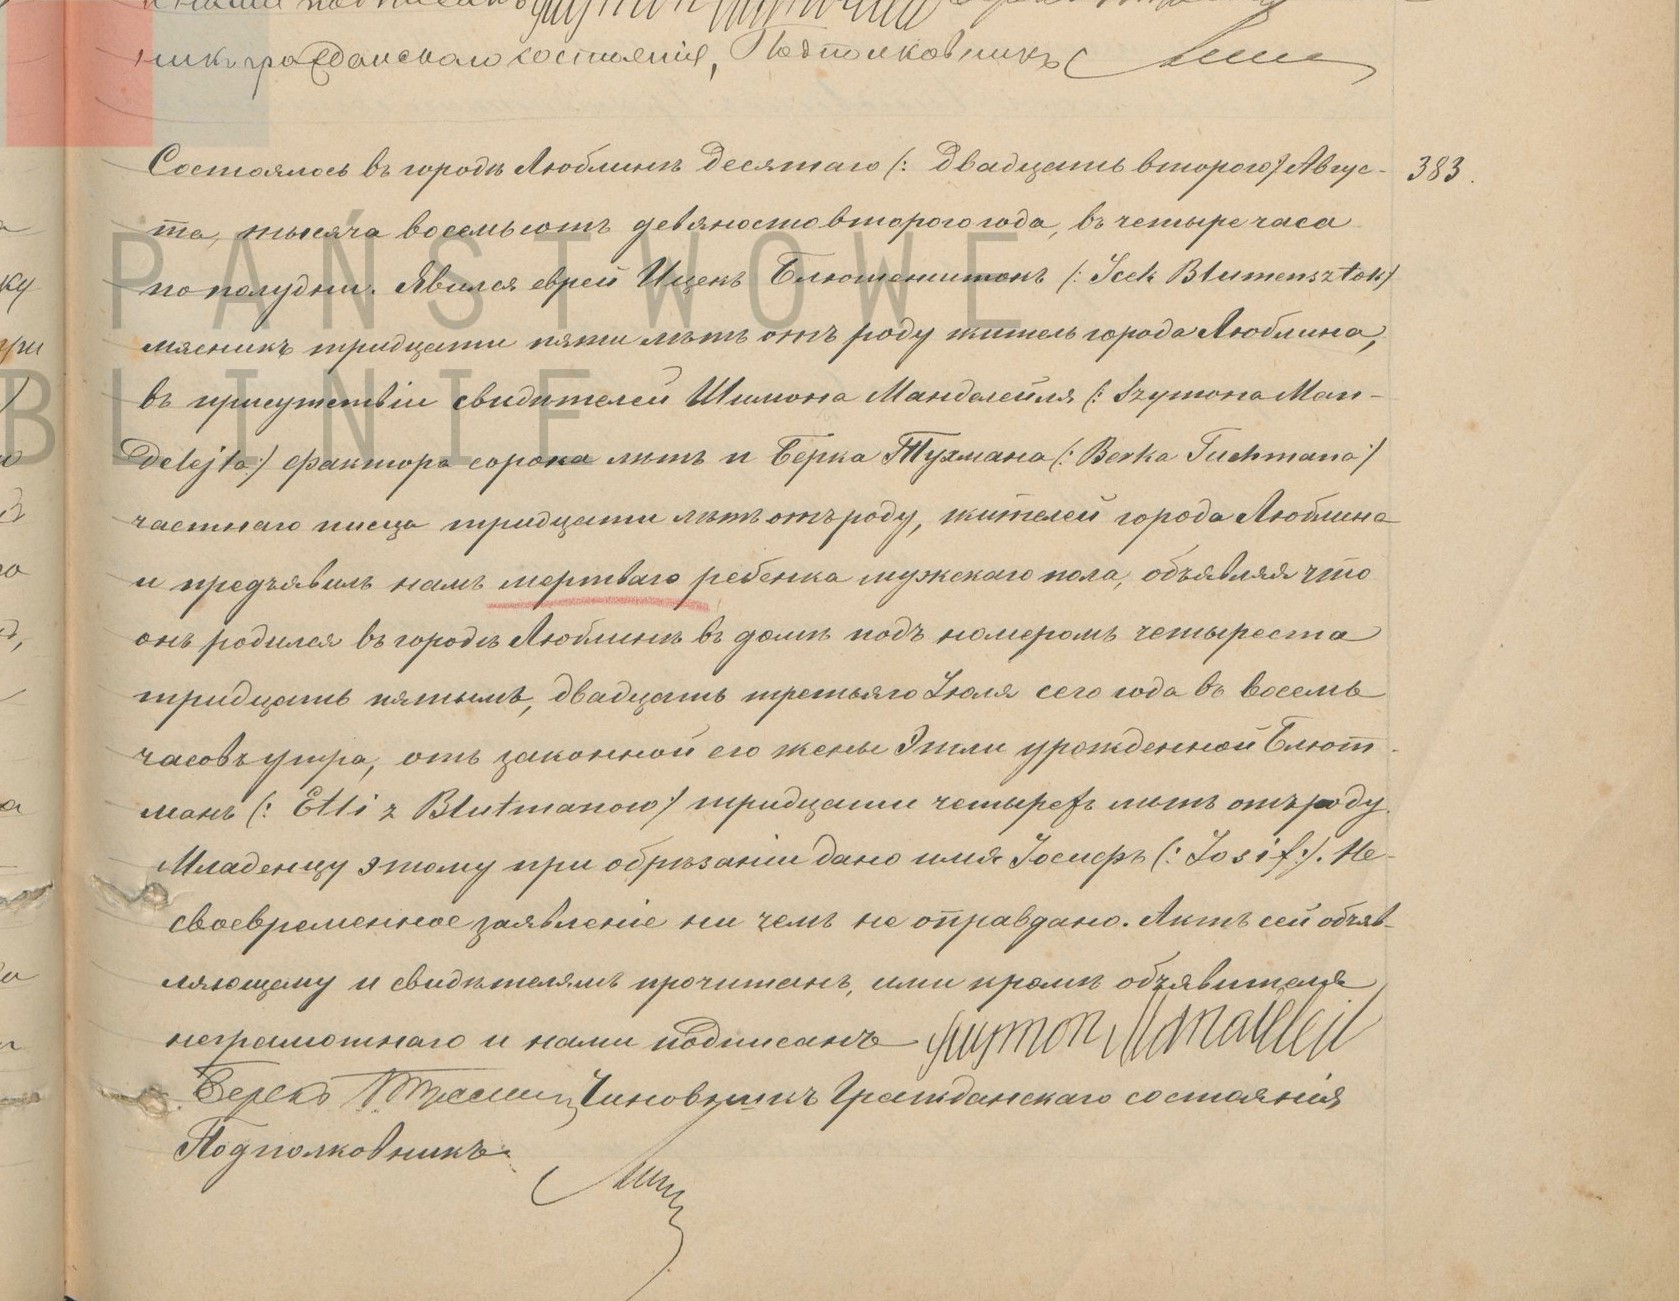 никъ гражданскаго состоянія, Подполковникъ
Состоялось въ городѣ Люблинѣ десятаго (: двадцать втораго) Авгус- 383.
та, тысяча восемьсотъ девяносто втораго года, въ четыре часа
по полудни. Явился еврей Ицекъ Блюменштокъ (: Icek Blumensztok)
мясникъ тридцати пяти лѣтъ отъ роду житель города Люблина,
въ присутствіи свидѣтелей Шимона Манделейля (: Szymona Man-
delejla:) фактора сорока лѣтъ и Берка Тухмана (: Berka Tuchmana:)
частнаго писца тридцати лѣтъ отъ роду, жителей города Люблина
и предъявилъ намъ мертваго ребенка мужскаго пола, объявляя что
онъ родился въ городѣ Люблинѣ въ домѣ подъ номеромъ четыреста
тридцать пятымъ, двадцать третьяго Іюля сего года въ восемь
часовъ утра, отъ законной его жены Этли урожденной Блют-
манъ (: Etli z Blutmanow) тридцати четырехъ лѣтъ отъ роду.
Младенцу этому при обрѣзаніи дано имя Іосифъ (: Iosif:). Не-
своевременное заявленіе ни чемъ не оправдано. Актъ сей объяв-
ляющему и свидѣтелямъ прочитанъ, ими кромѣ объявителя
неграмотнаго и нами подписанъ Szymon Mandelejl
Берекъ Чиновникъ Гражданскаго состоянія
Подполковникъ
PAŃSTWOWE
BLINIE